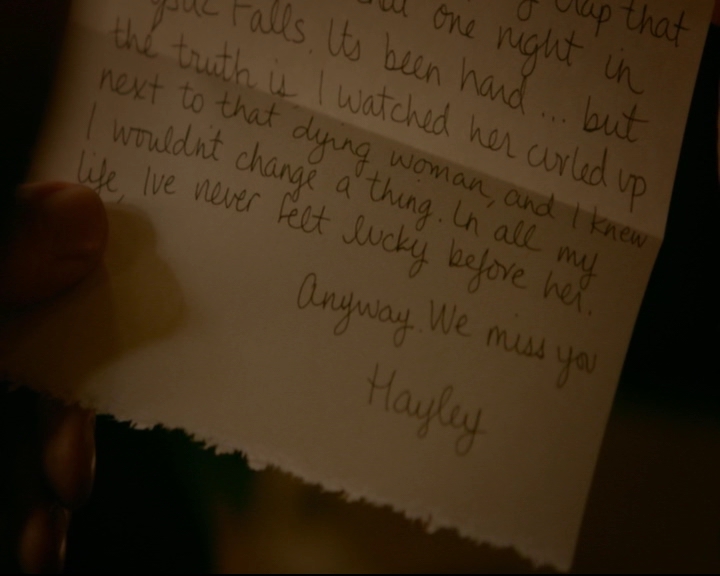 that
Falls. Its been one night in
the truth is I watched hard... but
next to that dying woman, her curled up
I wouldnt change a thing. In all my and I knew
life, Ive never felt lucky before her.
Anyway. We miss you
Hayley